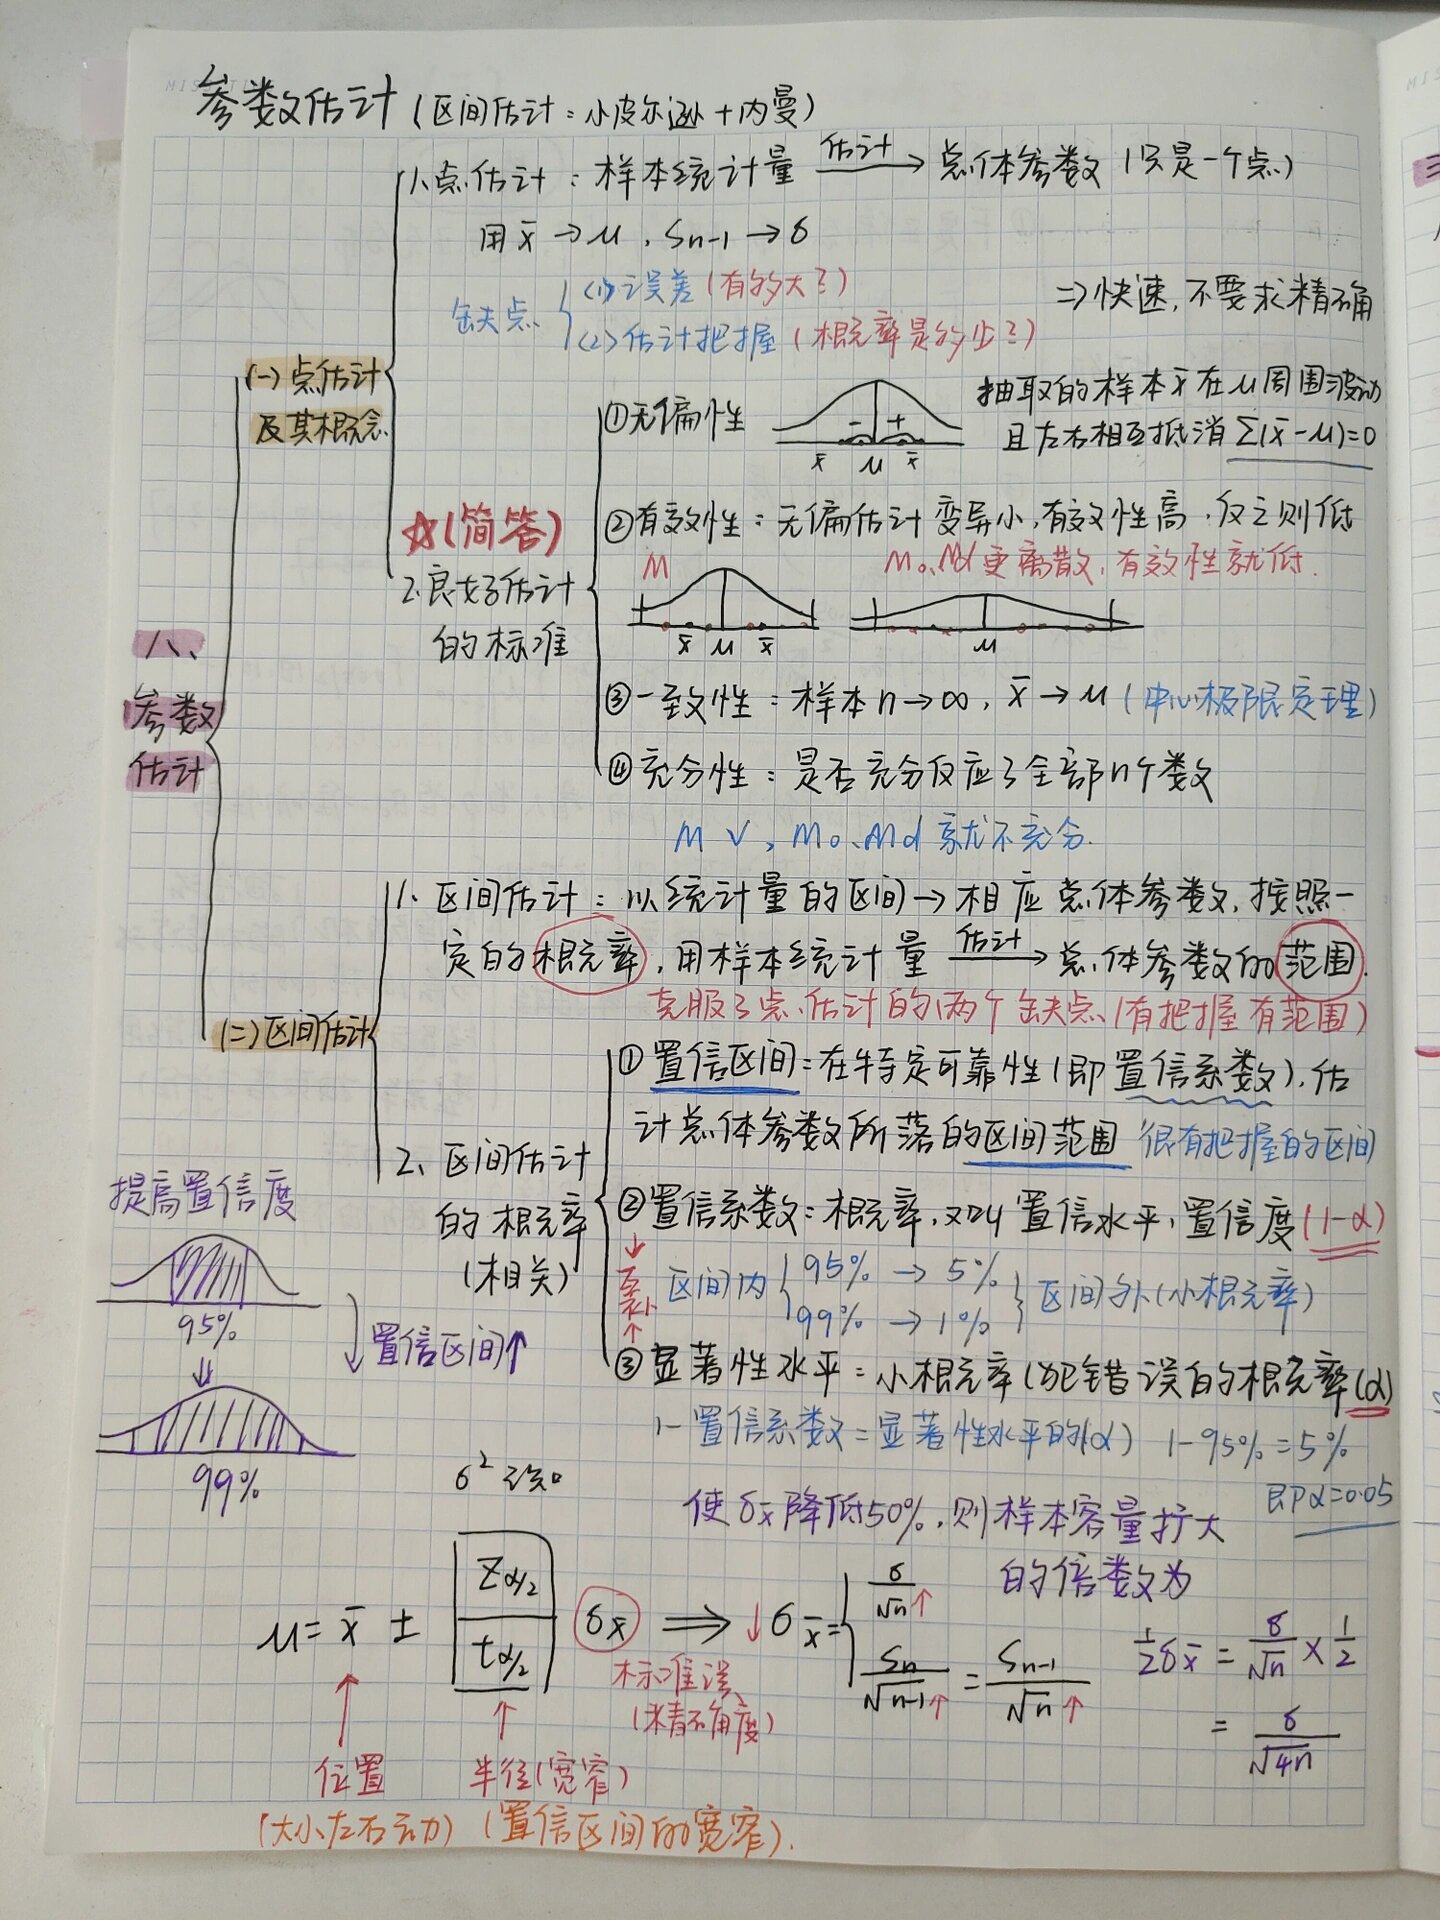 参数估计(区间估计:小皮尔逊+内曼)
八、参数估计
(一)点估计及其概念
1.点估计:样本统计量 —估计→ 总体参数(只是一个点)
用x̄→μ,Sn-1→σ
缺点
(1)误差(有多大?)
(2)估计把握(概率是多少?)
⇒快速,不要求精确
☆(简答)
2.良好估计的标准
①无偏性
− +
x̄ μ x̄
抽取的样本x̄在μ周围波动
且左右相互抵消Σ(x̄-μ)=0
②有效性:无偏估计变异小,有效性高,反之则低
M
Mo、Md更离散,有效性就低.
x̄ μ x̄
μ
③一致性:样本n→∞,x̄→μ(中心极限定理)
④充分性:是否充分反应了全部n个数
M√,Mo、Md就不充分.
(二)区间估计
1.区间估计:以统计量的区间→相应总体参数,按照一
定的概率,用样本统计量 —估计→ 总体参数的范围.
克服了点估计的两个缺点(有把握有范围)
2、区间估计的概率(相关)
①置信区间:在特定可靠性(即置信系数),估
计总体参数所落的区间范围 很有把握的区间
②置信系数:概率,又叫置信水平,置信度(1-α)
↓互补↑
区间内{95%→5% 99%→1%}区间外(小概率)
③显著性水平:小概率(犯错误的概率(α)
1-置信系数=显著性水平的(α) 1-95%=5%
即α=0.05
提高置信度
95%
置信区间↑
99%
σ²已知
使σx̄降低50%,则样本容量扩大
的倍数为
μ=x̄±
Zα/2
tα/2
σx̄ ⇒ ↓σx̄=
σ/√n↑
Sn/√n-1↑ = Sn-1/√n↑
½σx̄ = σ/√n × ½
= σ/√4n
标准误
(精确度)
位置
半径(宽窄)
(大小左右动)
(置信区间的宽窄).